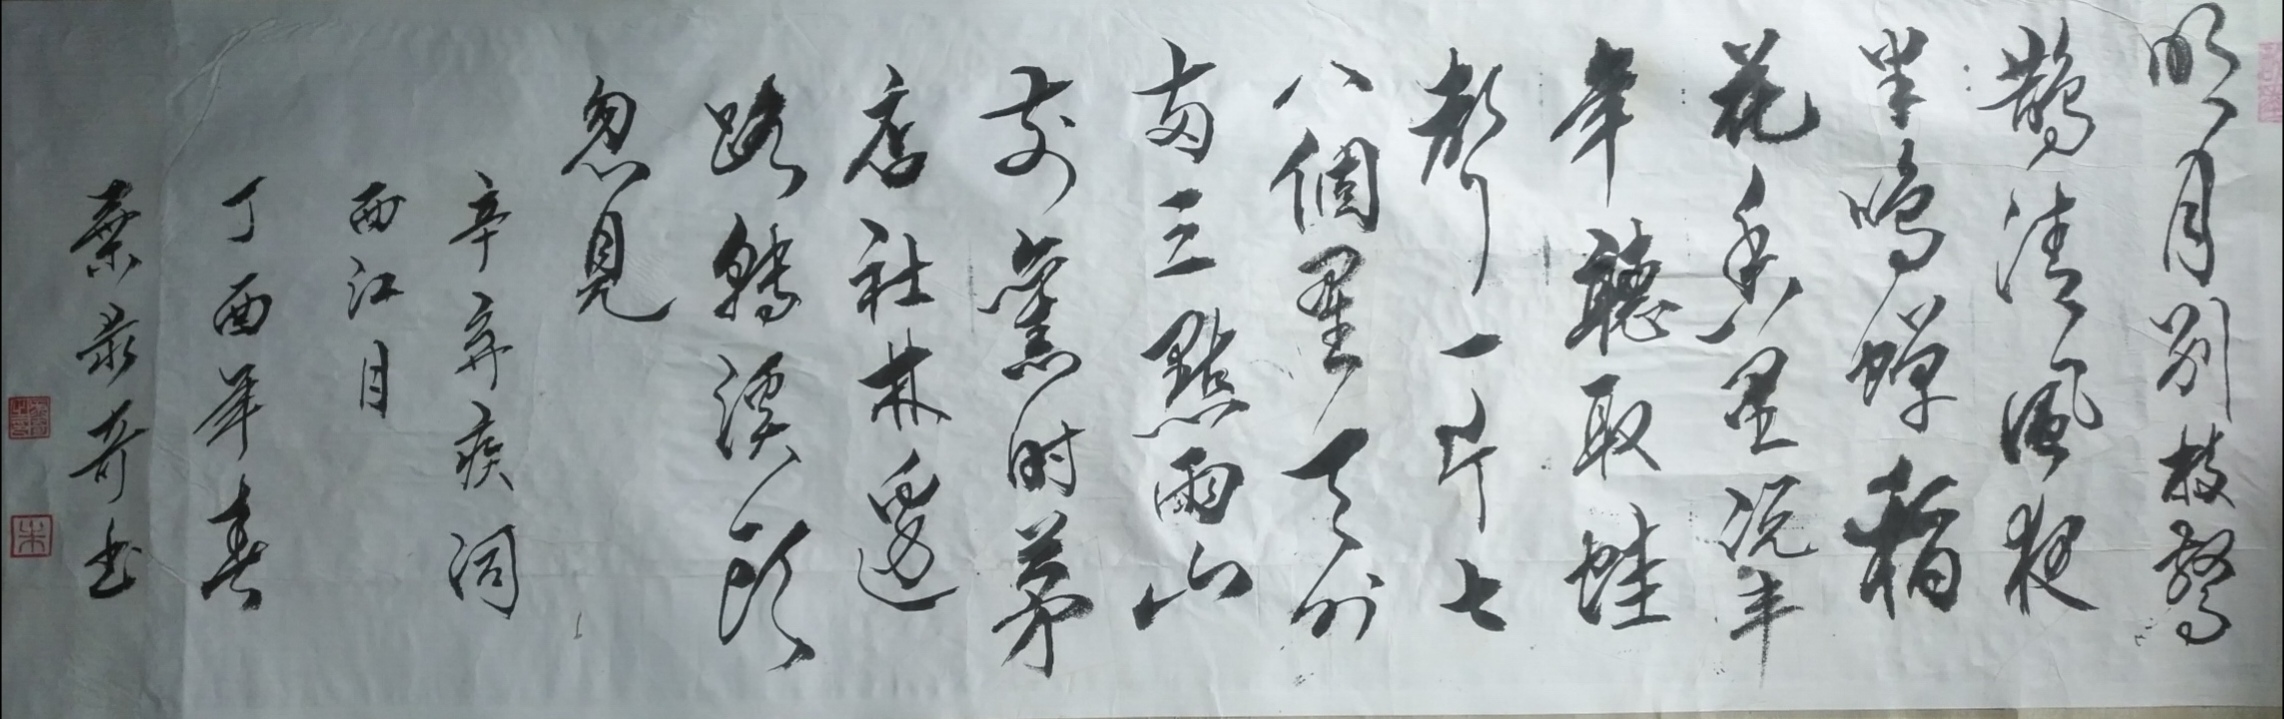 明月别枝驚
鵲清風夜
半鳴蟬稻
花香里说丰
年聽取蛙
声一片七
八個星天外
両三點雨山
前舊时茅
店社林邊
路轉溪頭
忽見
辛弃疾词
西江月
丁酉年春
录奇书